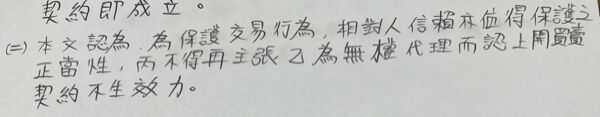 契約即成立。
(二) 本文認為，為保護交易行為，相對人信賴亦值得保護之
正當性，丙不得再主張乙為無權代理而認上開買賣
契約不生效力。